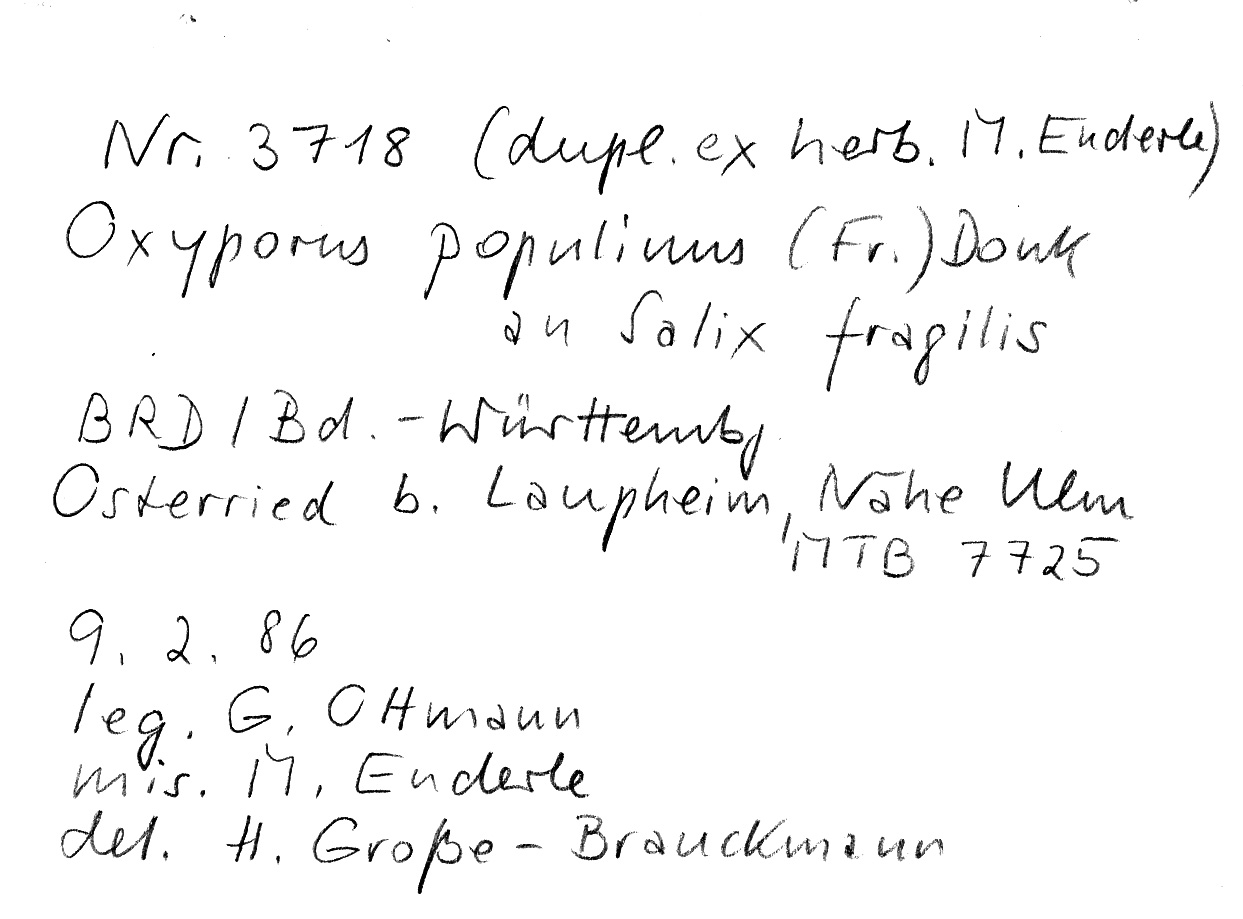 Nr. 3718 (dupl. ex herb. M. Enderle)
Oxyporus populinus (Fr.) Donk
an Salix fragilis
BRD / Bd. - Württembg
Osterried b. Laupheim, Nähe Ulm
MTB 7725
9. 2. 86
leg. G. Ottmann
mis. M. Enderle
det. H. Große - Brauckmann